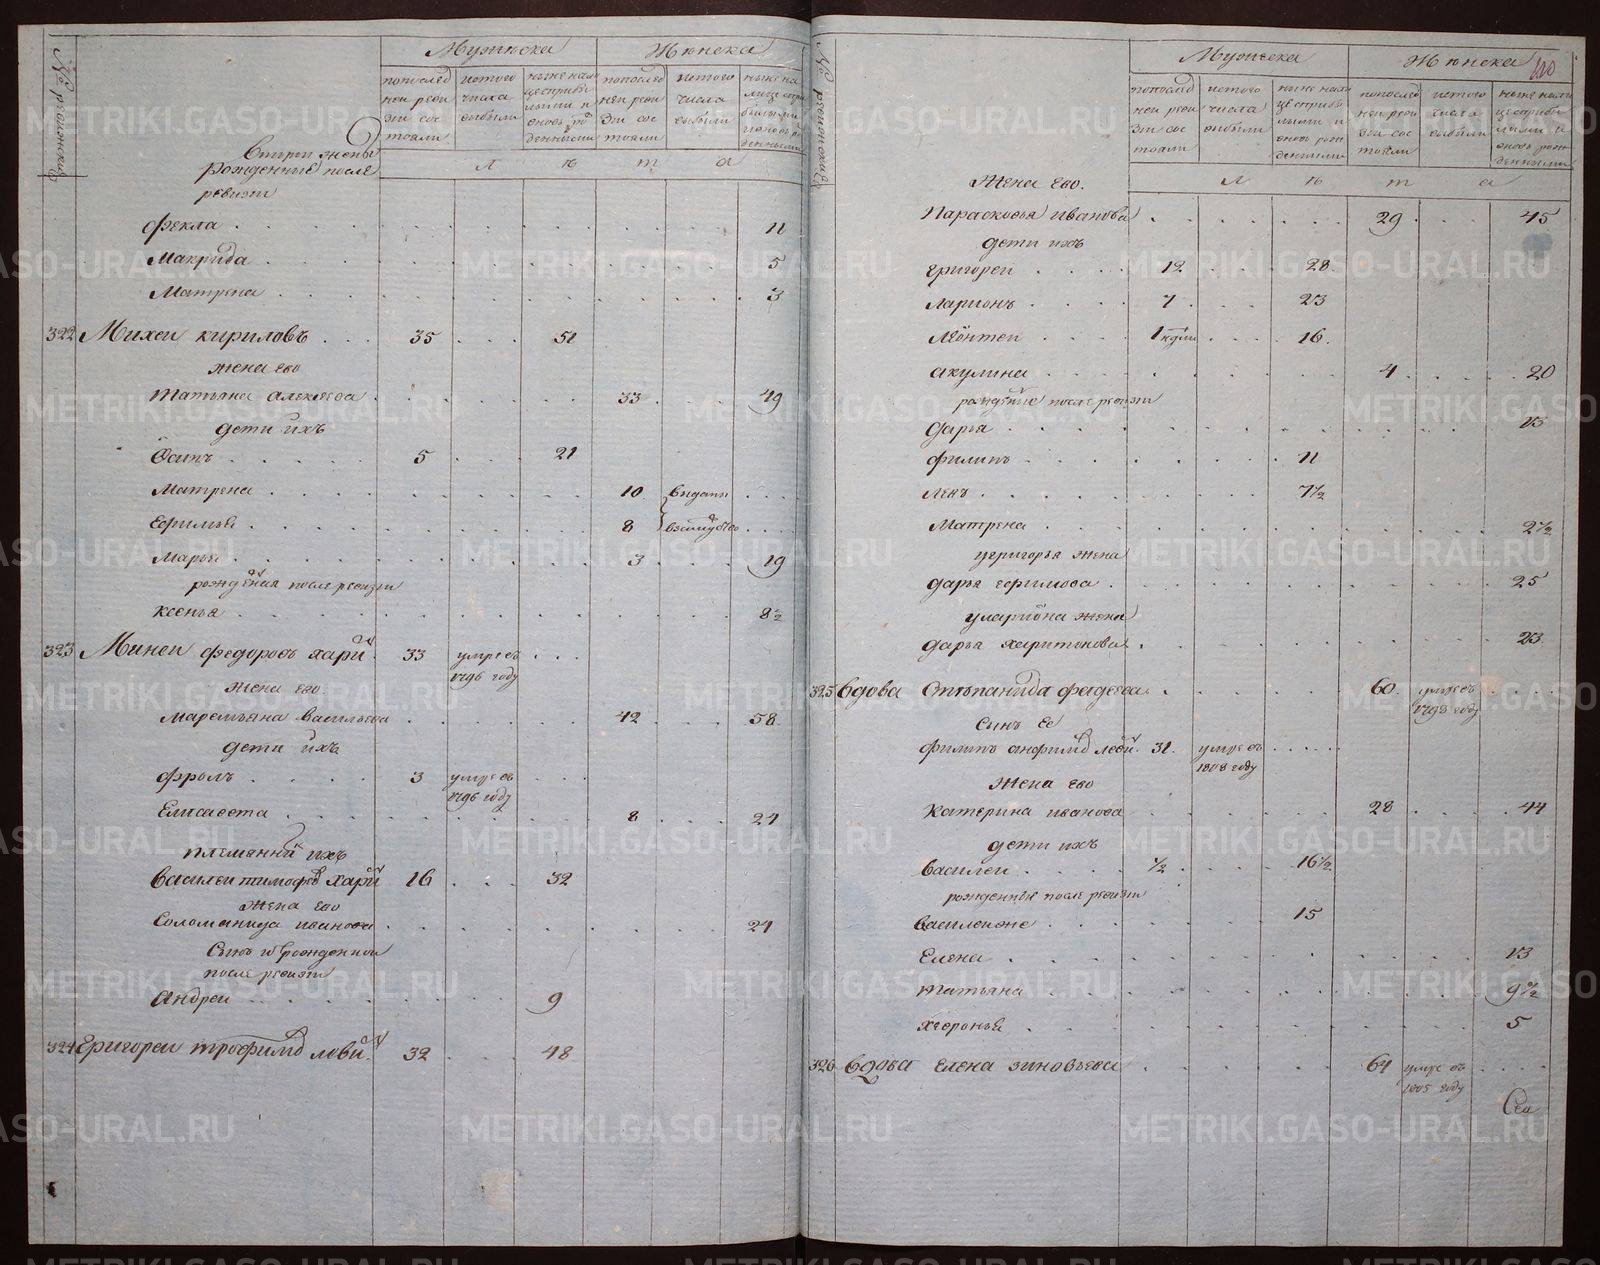 № ревижские
Мужеска
Женска
попослед ней реви зии сос тояли
истого числа выбыли
ныне нали це сприбы лыми и вновь рож денными
попослед ней реви зии сос тояли
истого числа выбыли
ныне на лице спри былыми ивновь ро жденными
л ѣ т а
рожденные после
ревизи
Фекла 11
Макрида 5
Матрена 3
322 Михеи кириловъ 35 51
жена ево
татьяна алексеева 33 49
дети ихъ
Осипъ 5 21
Матрена 10 выданы
Ефимья 8 взамужъство
Марья 3 19
рожденая после ревизи
ксенья 8½
323 Минеи федоровъ хари 33 умре въ
1796 году
жена ево
Маремьяна васильева 42 58
дети ихъ
Фролъ 3 умре въ
1796 году
Елисавета 8 24
племянни ихъ
василеи тимофеевъ хари 16 32
жена ево
Соломанида иванова 24
Сынъ ихъ рожденнои
после ревизи
Андреи 9
324 Григореи трофимовъ лови 32 48
№ ревижские
Мужеска
Женска
110
попослед ней реви зии сос тояли
истого числа выбыли
ныне нали це сприбы лыми и вновь рож денными
попослед ней реви зии сос тояли
истого числа выбыли
ныне нали це сприбы лыми и вновь рож денными
л ѣ т а
Жена ево.
Парасковья иванова 29 45
дети ихъ
григореи 12 28
Ларионъ 7 23
Леонтеи 1 16
акулина 4 20
рожденые после ревизи
дарья 13
филипъ 11
Левъ 7½
Матрена 2½
угригорья жена
дарья ефимова 25
улариона жена
дарья харитонова 23
325 вдова Степанида фадеева 60 умре въ
1798 году
сынъ ее
филипъ анфимовъ лови 31 умре въ
1808 году
Жена ево
Катерина иванова 28 44
дети ихъ
Василеи ½ 16½
рожденные после ревизи
василеиже 15
Елена 13
татьяна 9½
хавронья 5
326 вдова Елена зиновьева 64 умре въ
1805 году
METRIKI.GASO-URAL.RU